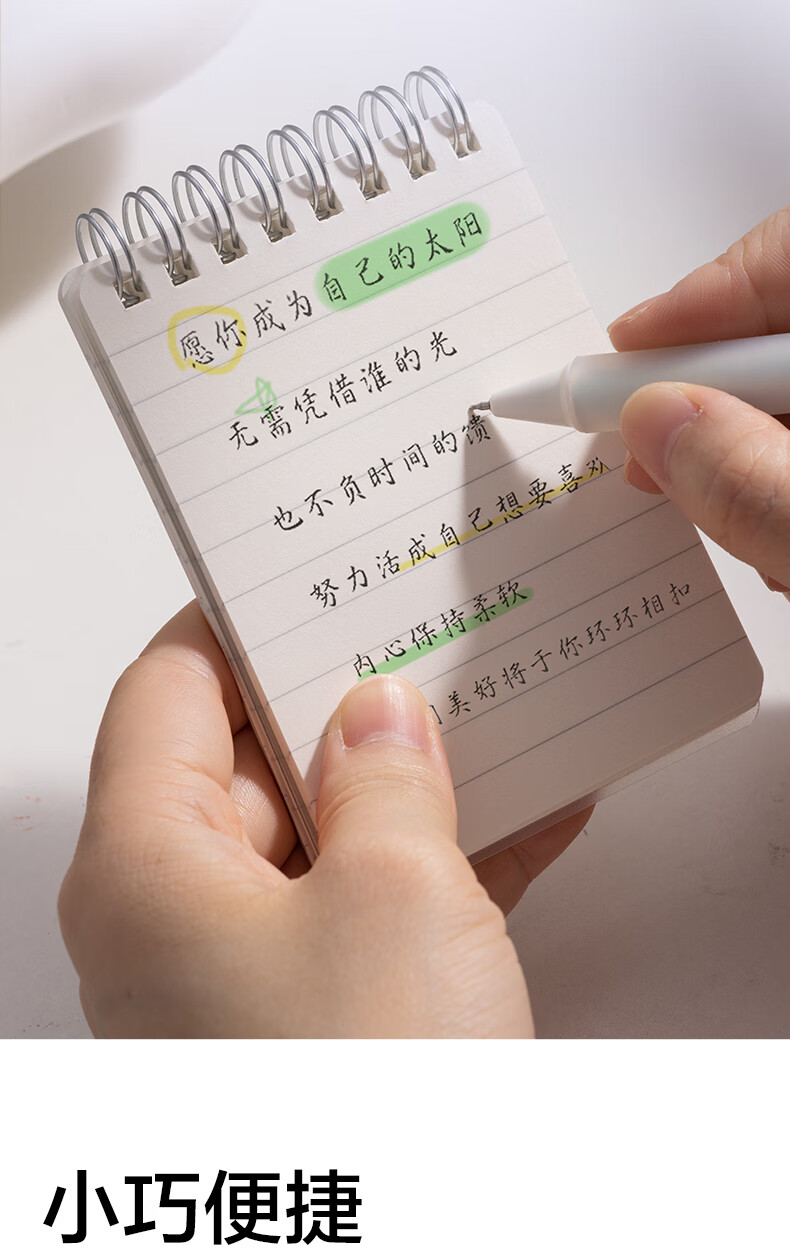 愿你成为自己的太阳
无需凭借谁的光
也不负时间的馈
努力活成自己想要喜
内心保持柔软
美好将于你环环相扣
小巧便捷